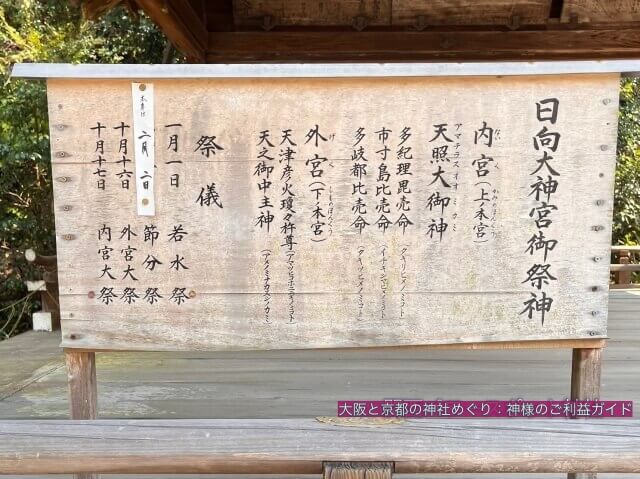 日向大神宮御祭神
内宮（上ノ本宮）
ない くう
かみのほんぐう
天照大御神
アマテラスオオミカミ
多紀理毘売命（タキリヒメノミコト）
市寸島比売命（イチキシマヒメノミコト）
多岐都比売命（タキツヒメノミコト）
外宮（下ノ本宮）
げ く
しものほんぐう
天津彦火瓊々杵尊（アマツヒコホニニギノミコト）
天之御中主神（アメノミナカヌシノカミ）
祭儀
一月一日 若水祭
本年は 二月 二日 節分祭
十月十六日 外宮大祭
十月十七日 内宮大祭
大阪と京都の神社めぐり：神様のご利益ガイド